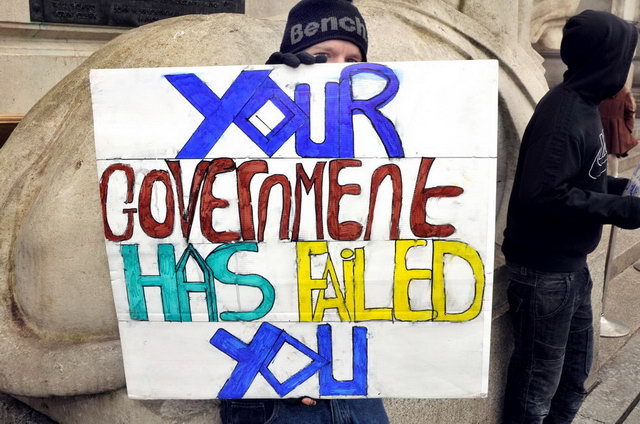 Bench
YOUR
GOVERNMENT
HAS FAiLED
YOU